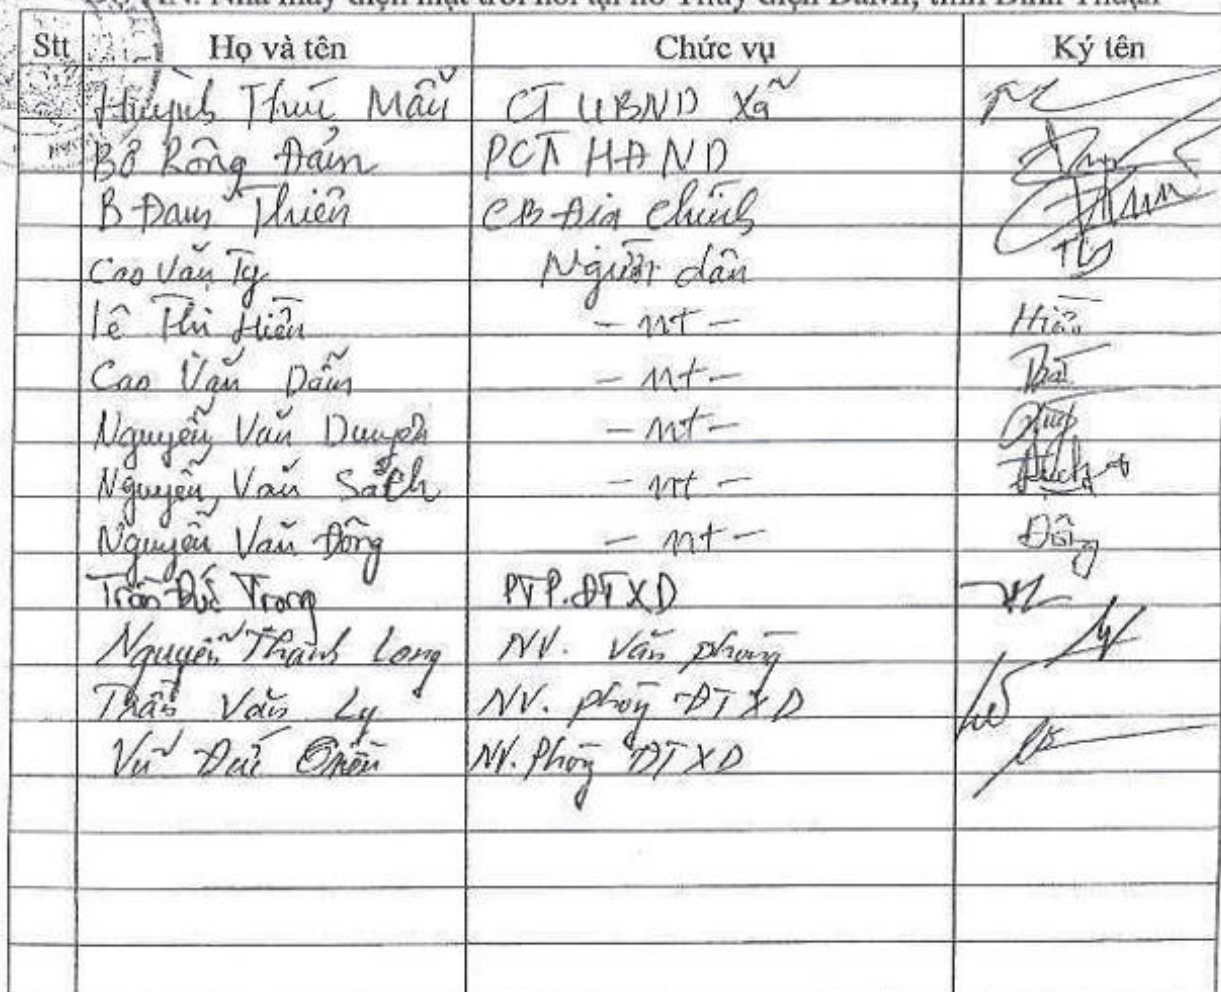 Nhà máy điện mặt trời nổi tại hồ Thủy điện ĐaMi, tỉnh Bình Thuận
Stt Họ và tên Chức vụ Ký tên
Huỳnh Thúc Mẫn CT UBND Xã
Bờ Rông Đảm PCT HĐND
B Đam Thiên CB Địa chính
Cao Văn Tỵ Người dân Tỵ
Lê Thị Hiền - nt - Hiền
Cao Văn Dẫn - nt -
Nguyễn Văn Duyên - nt -
Nguyễn Văn Sách - nt -
Nguyễn Văn Đông - nt - Đông
Trần Đức Trọng PTP. ĐTXD
Nguyễn Thành Long NV. Văn phòng
Trần Văn Ly NV. phòng ĐTXD
Vũ Đức NV. Phòng ĐTXD